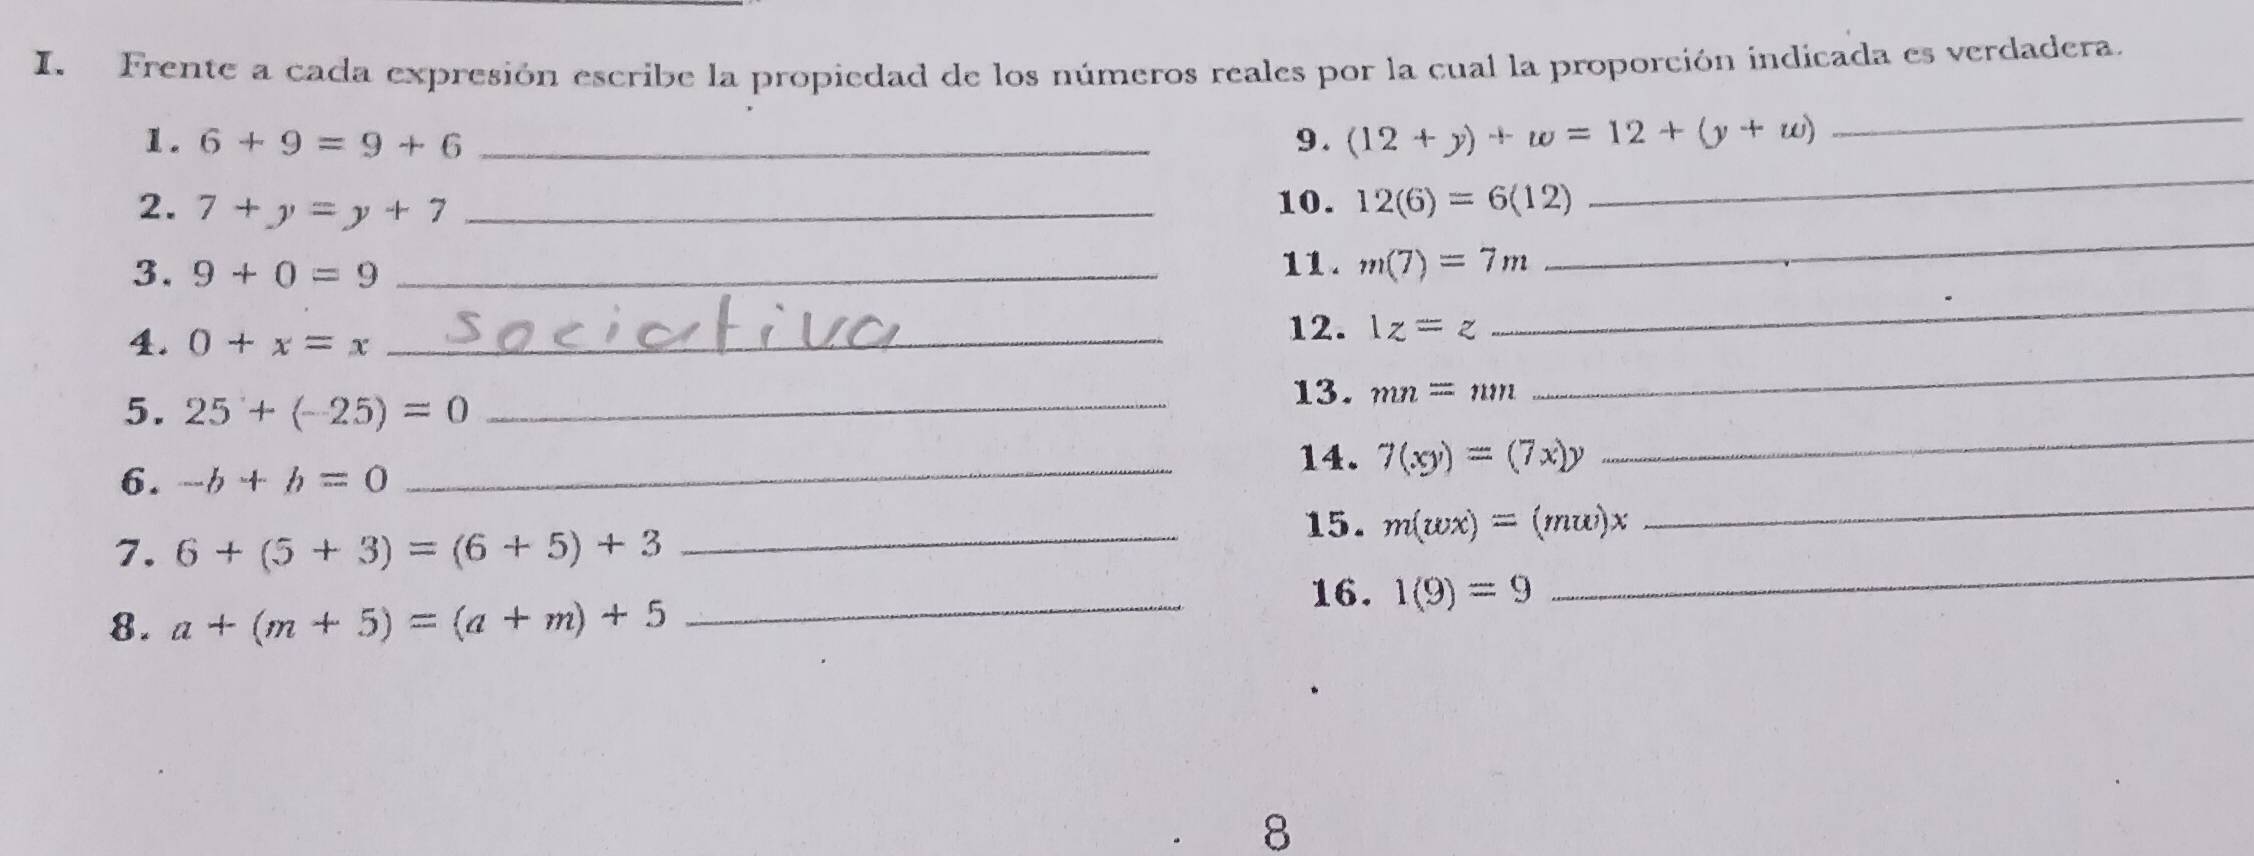 I. Frente a cada expresión escribe la propiedad de los números reales por la cual la proporción indicada es verdadera.
1. 6 + 9 = 9 + 6
2. 7 + y = y + 7
3. 9 + 0 = 9
4. 0 + x = x sociativa
5. 25 + (-25) = 0
6. -b + b = 0
7. 6 + (5 + 3) = (6 + 5) + 3
8. a + (m + 5) = (a + m) + 5
9. (12 + y) + w = 12 + (y + w)
10. 12(6) = 6(12)
11. m(7) = 7m
12. 1z = z
13. mn = nm
14. 7(xy) = (7x)y
15. m(wx) = (mw)x
16. 1(9) = 9
8